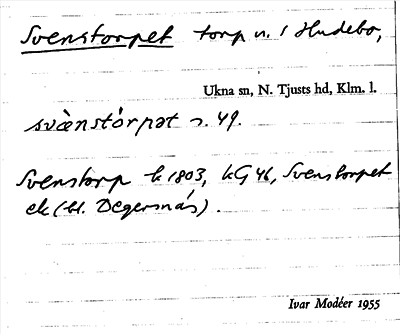 Svenstorpet torp u. 1 Hudebo,
Ukna sn, N. Tjusts hd, Klm. l.
svä̀nstórpət s. 49.
Svenstorp k 1803, kG 46, Svenstorpet
ek (bl. Degernäs).
Ivar Modéer 1955